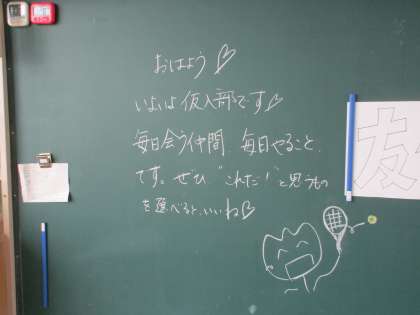 おはよう♡
いよいよ仮入部です♡
毎日会う仲間、毎日やること
です。ぜひ“これだ！”と思うもの
を選べるといいね♡
友